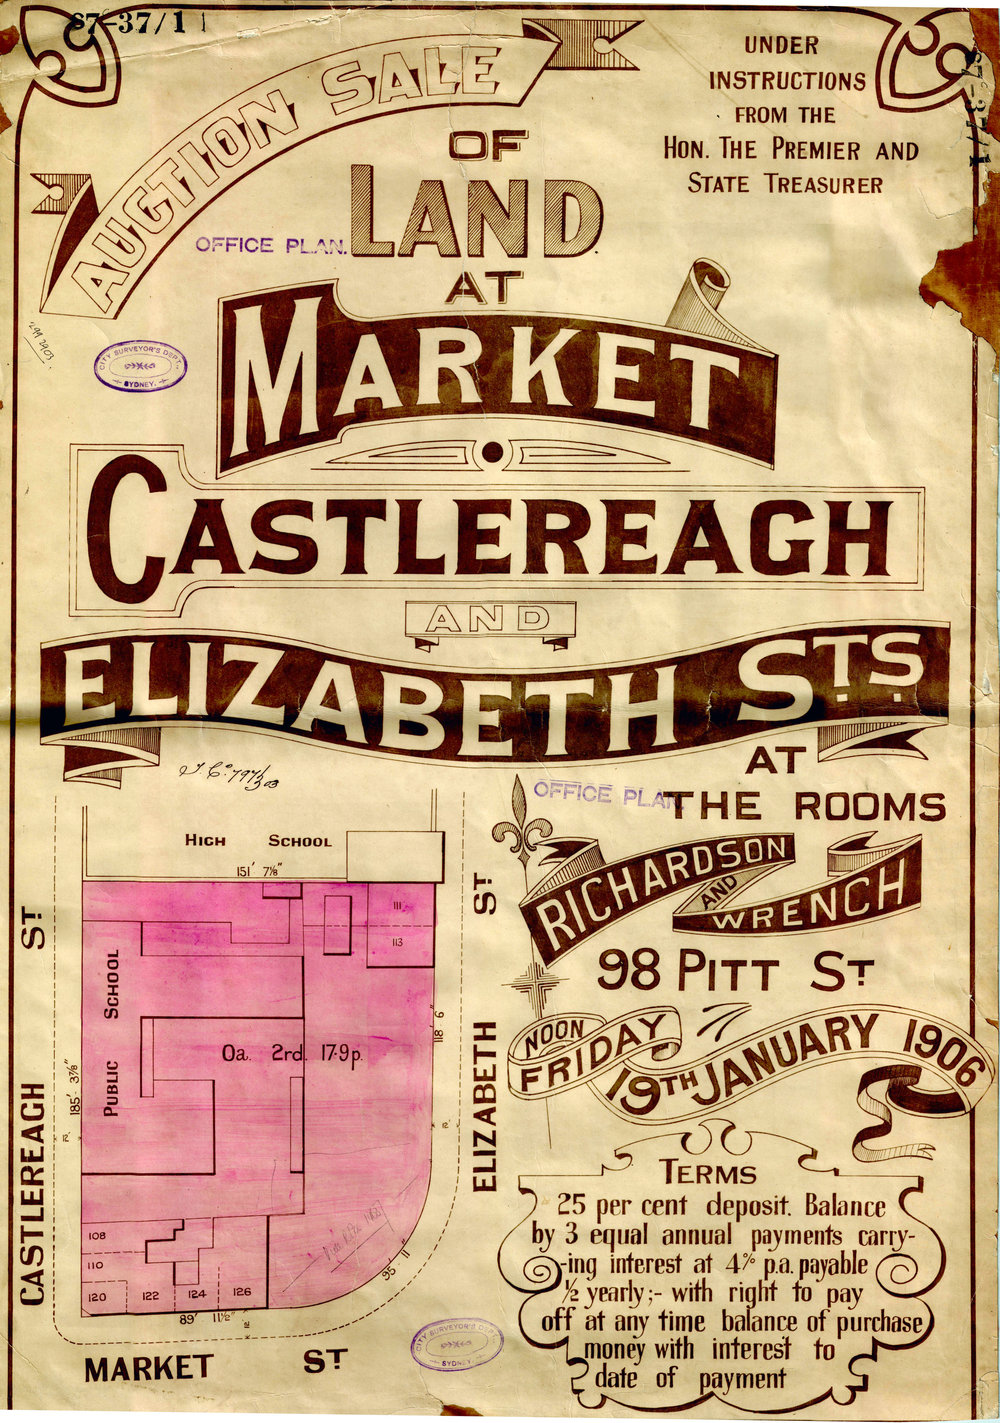 87-37/1
AUCTION SALE
OF
LAND
AT
MARKET
CASTLEREAGH
AND
ELIZABETH STS
AT
THE ROOMS
RICHARDSON
AND
WRENCH
98 PITT ST
NOON
FRIDAY
19TH JANUARY 1906
UNDER
INSTRUCTIONS
FROM THE
HON. THE PREMIER AND
STATE TREASURER
87-37/1
OFFICE PLAN.
CITY SURVEYOR'S DEPT.
SYDNEY.
OFFICE PLAN
HIGH SCHOOL
151' 7⅛"
111
113
PUBLIC SCHOOL
0a. 2rd. 17·9p.
118' 6"
185' 3⅞"
12'
12'
108
110
120
122
124
126
89' 11½"
12'
95' 11"
CASTLEREAGH ST
ELIZABETH ST
MARKET ST
CITY SURVEYOR'S DEPT.
SYDNEY.
TERMS
25 per cent deposit. Balance
by 3 equal annual payments carry-
-ing interest at 4% p.a. payable
½ yearly;- with right to pay
off at any time balance of purchase
money with interest to
date of payment